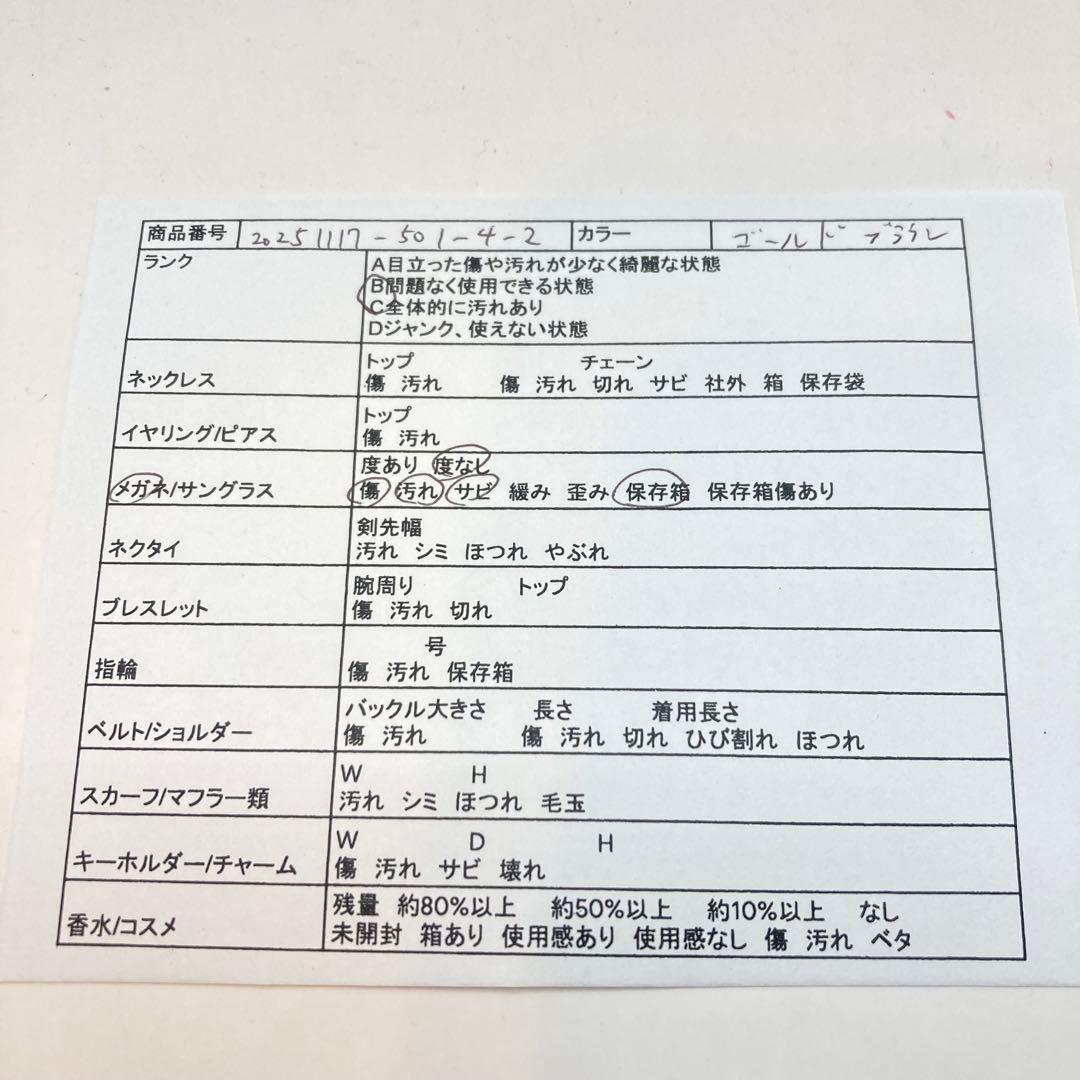 商品番号 20251117-501-4-2 カラー ゴールド ブラウン
ランク
A目立った傷や汚れが少なく綺麗な状態
B問題なく使用できる状態
C全体的に汚れあり
Dジャンク、使えない状態
ネックレス
トップ チェーン
傷 汚れ 傷 汚れ 切れ サビ 社外 箱 保存袋
イヤリング/ピアス
トップ
傷 汚れ
メガネ/サングラス
度あり 度なし
傷 汚れ サビ 緩み 歪み 保存箱 保存箱傷あり
ネクタイ
剣先幅
汚れ シミ ほつれ やぶれ
ブレスレット
腕周り トップ
傷 汚れ 切れ
指輪
号
傷 汚れ 保存箱
ベルト/ショルダー
バックル大きさ 長さ 着用長さ
傷 汚れ 傷 汚れ 切れ ひび割れ ほつれ
スカーフ/マフラー類
W H
汚れ シミ ほつれ 毛玉
キーホルダー/チャーム
W D H
傷 汚れ サビ 壊れ
香水/コスメ
残量 約80%以上 約50%以上 約10%以上 なし
未開封 箱あり 使用感あり 使用感なし 傷 汚れ ベタ